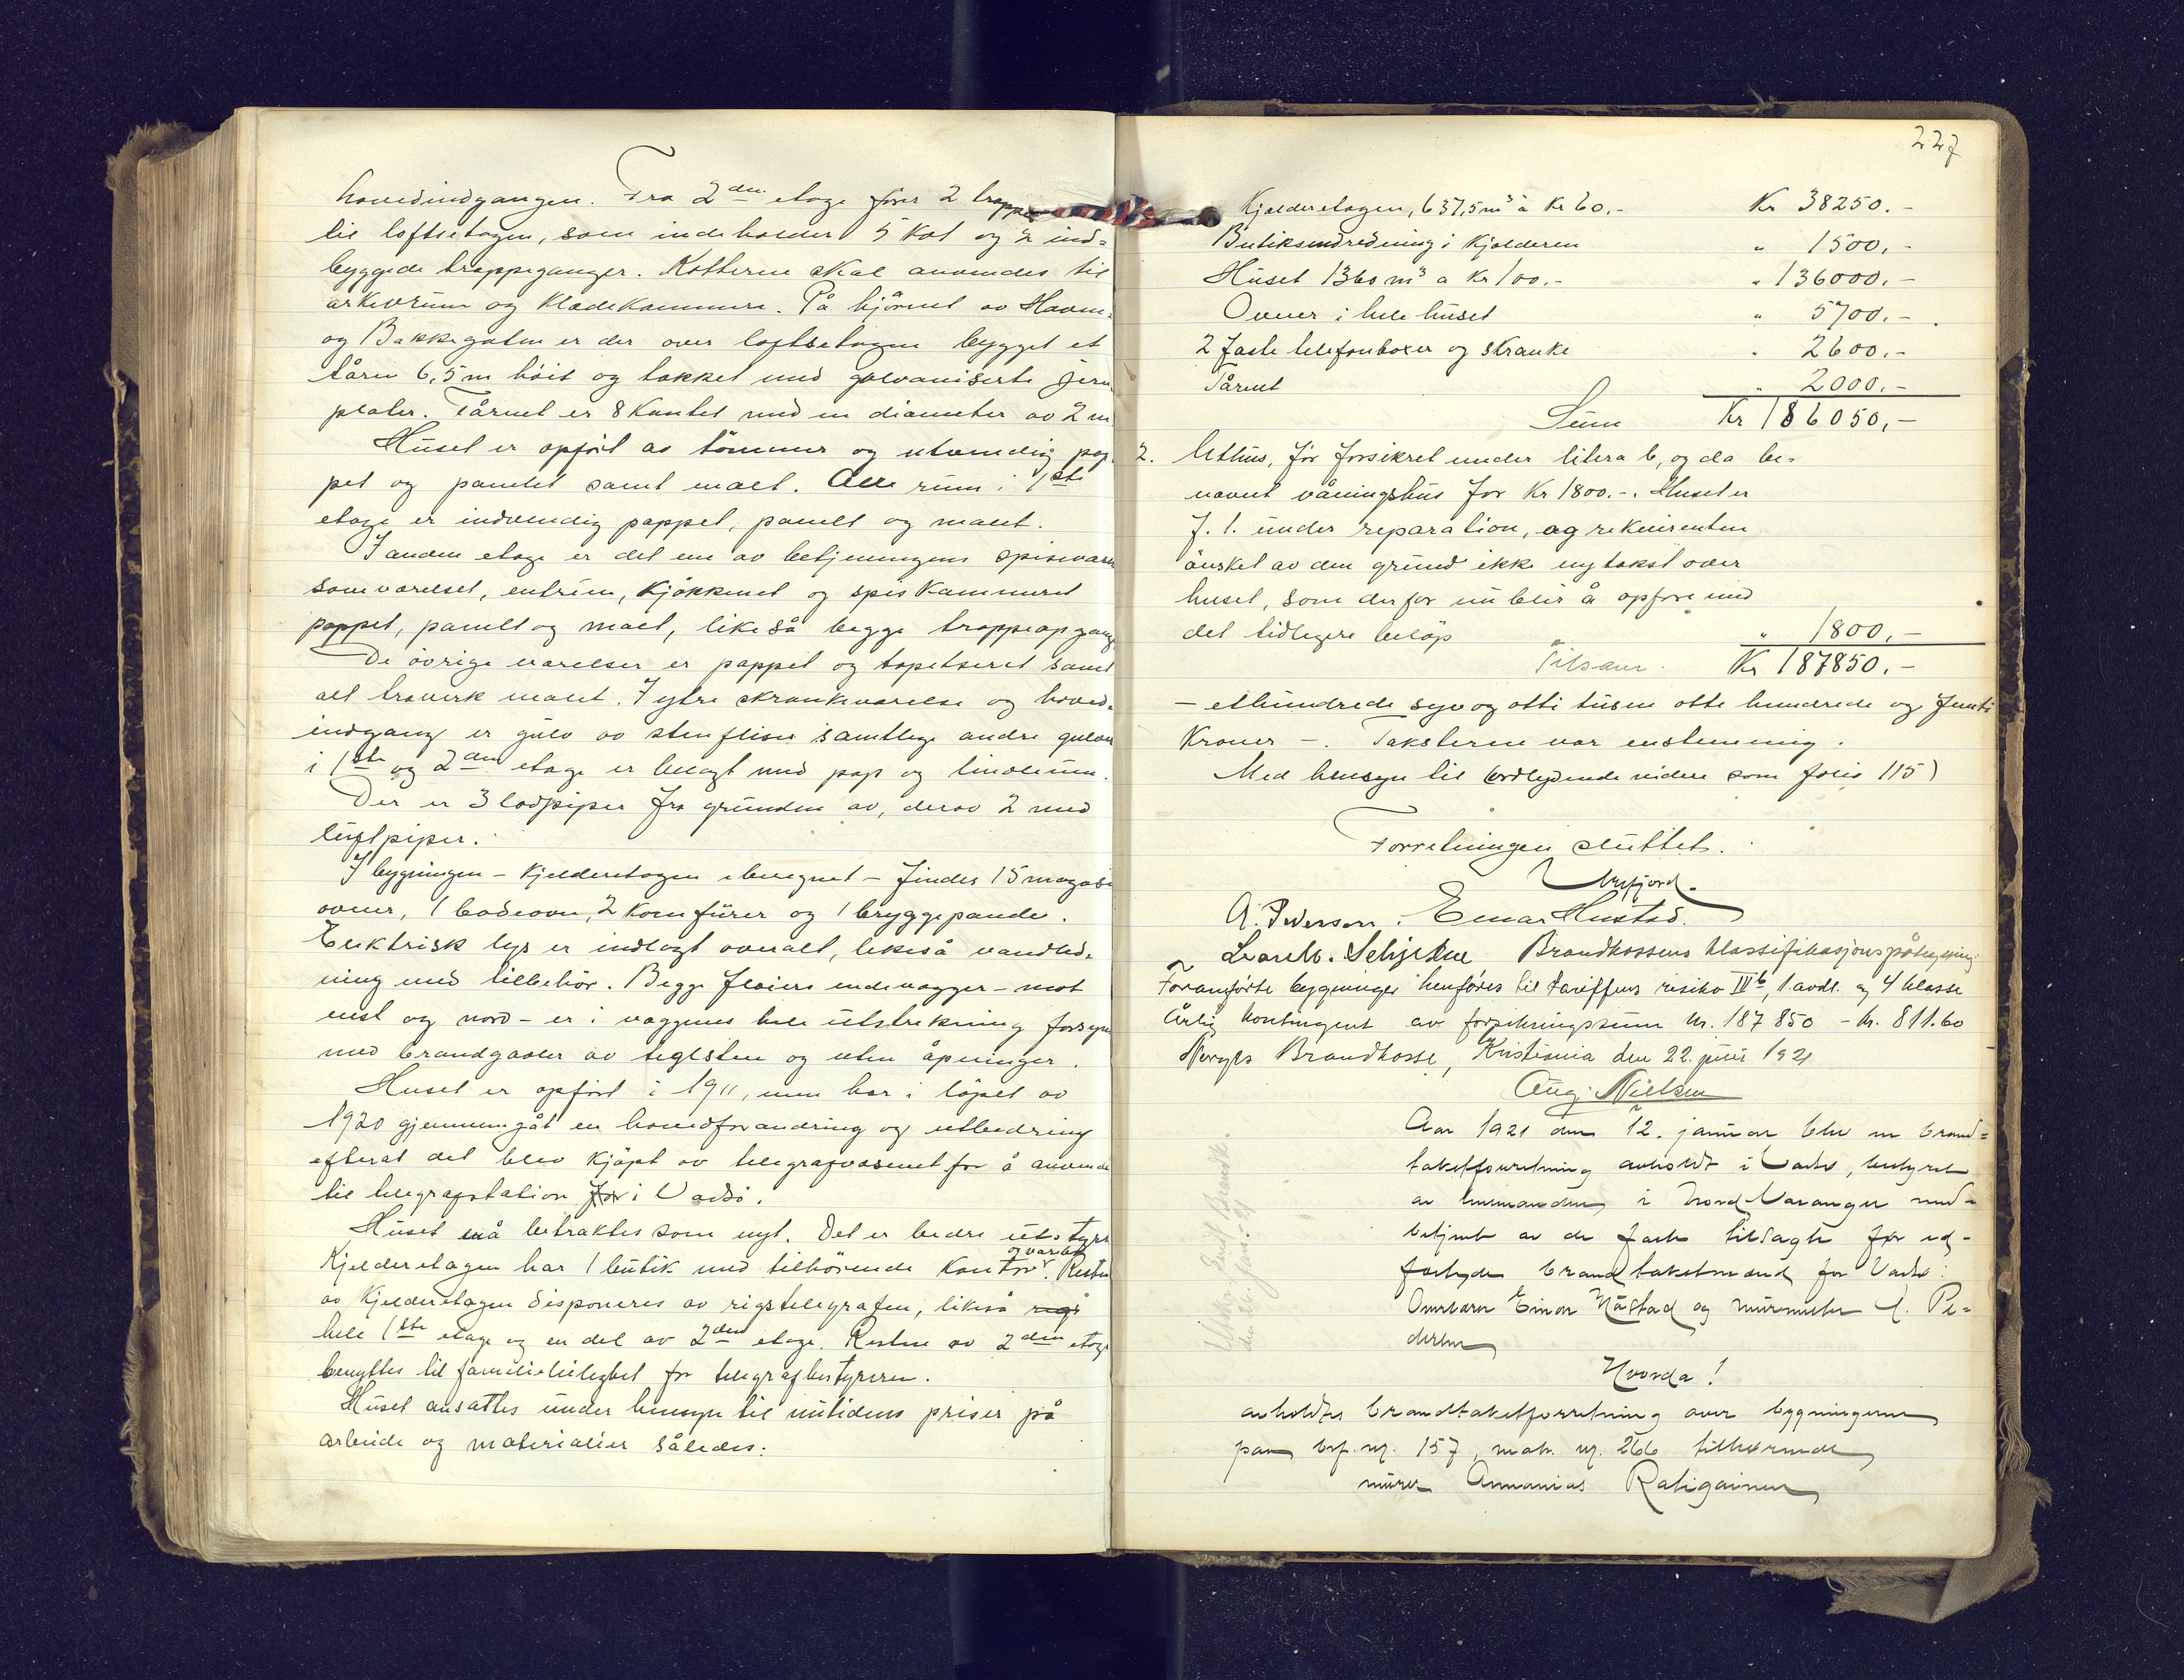 hovedindgangen. Fra 2den etage fører 2 trapper
til loftsetagen, som indeholder 5 kot og 2 ind=
byggede trappeganger. Kotterne skal anvendes til
arkivrum og klædekammere. På hjørnet av Havne-
og Bakkegaten er der over loftsetagen bygget et
tårn 6,5 m høit og takket med galvaniserte jern
plater. Tårnet er 8 kantet med en diameter av 2 m
Huset er opført av tømmer og utvendig pap-
pet og panelet samt malt. Alle rum i 1ste
etage er indvendig pappet, panelt og malet.
I anden etage er det ene av betjeningens spisevær
soveværelset, entréen, kjøkkenet og spiskammeret
pappet, panelt og malt, likeså begge trappeopgang
De øvrige værelser er pappet og tapetseret samt
alt træverk malet. I ytre skrankeværelse og hoved=
indgang er gulv av stenfliser samtlige andre gulver
i 1ste og 2den etage er belagt med pap og linoleum.
Der er 3 lodpiper fra grunden av, derav 2 med
luftpiper.
I bygningen – kjelderetagen iberegnet – findes 15 magasin
ovner, 1 badeovn, 2 komfurer og 1 bryggepande.
Elektrisk lys er indlagt overalt, likeså vandled=
ning med tilbehør. Begge fløiers endevægger – mot
vest og nord – er i væggenes hele utstrekning forsyn
med brandgavler av teglsten og uten åpninger.
Huset er opført i 1911, men har i løpet av
1920 gjennemgåt en hovedforandring og utbedring
efterat det blev kjøpt av telegrafvæsenet for å anvende
til telegrafstation for i Vadsø.
Huset må betraktes som nyt. Det er bedre utstyrt
og værelse
Kjelderetagen har 1 butik med tilhørende kontor. Resten
av kjelderetagen disponeres av rigstelegrafen, likeså rigs
hele 1ste etage og en del av 2den etage. Resten av 2den etage
benyttes til familieleilighet for telegrafbestyreren.
Huset ansattes under hensyn til nutidens priser på
arbeide og materialier således:
227
Kjælderetagen, 637,5 m3 à Kr 60.- Kr 38250.-
Butiksindredning i kjælderen " 1500,-
Huset 1360 m3 a Kr 100.- " 136000.-
Ovner i hele huset " 5700.-
2 faste telefonboxer og skranke " 2600.-
Tårnet " 2000.-
Sum Kr 186050,-
2. Uthus, før forsikret under litera b, og da be=
nævnt våningshus for Kr 1800.-. Huset er
f. t. under reparation, og rekvirenten
ønsket av den grund ikke ny takst over
huset, som derfor nu blir å opføre med
det tidligere beløp " 1800,-
Tilsam. Kr 187850.-
– ethundrede syv og otti tusen otte hundrede og femti
Kroner –. Taksterne var enstemmig.
Med hensyn til (ordlydende videre som folio 115)
Forretningen sluttet.
A. Pedersen. Einar Hustad.
Brandkassens klassifikasjonspåtegning
Foranførte bygninger henføres til tariffens risiko IIIb, 1. avdl. og 4 klasse
Årlig kontingent av forsikringssum kr. 187 850 – kr. 811.60
Norges Brandkasse, Kristiania den 22. juni 1921
Aug. Nielsen
Aar 1921 den 12. januar blev en brand=
takstforretning avholdt i Vadsø, bestyret
av lensmanden i Nord Varanger med=
betjent av de faste tilsagte før ed=
fæstede brandtakstmænd for Vadsø:
Einar Håstad og murmester A. Pe=
dersen
Hvorda!
avholdtes brandtakstforretning over bygningerne
paa brf. nr. 157, matr. nr. 266 tilhørende
murer Annanias